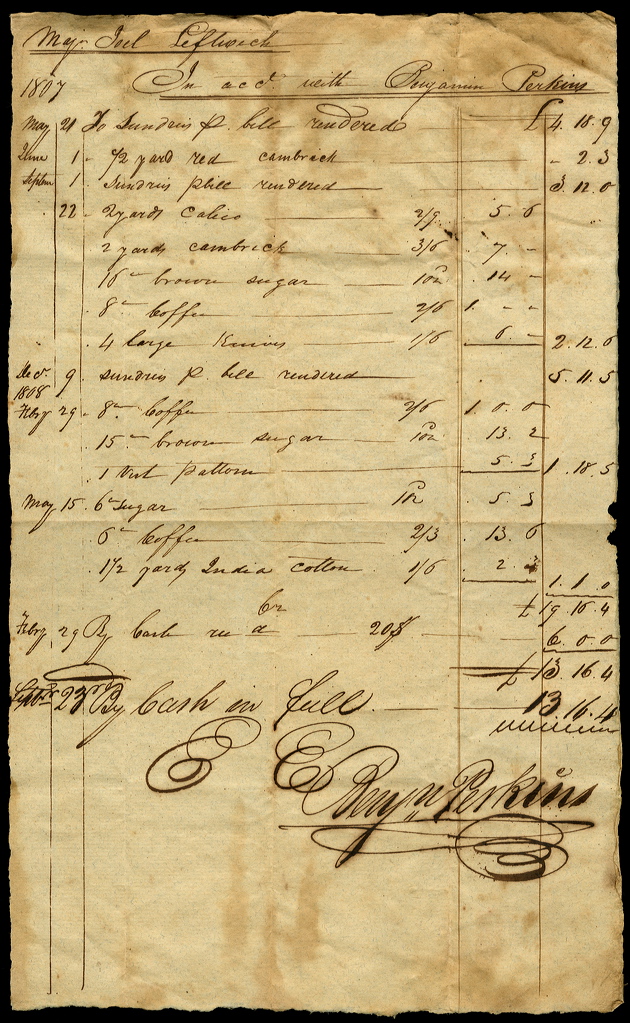 Majr. Joel Leftwich
1807 In accd. with Benjamin Perkins
May 21 To Sundries pr. bill rendered £ 4. 18. 9
June 1 - 1/2 yard red cambrick - 2. 3
Septem 1 - Sundries pbill rendered 3. 12. 0
22 - 2 yards Calico 2/9 5. 6
2 yards cambrick 3/6 7. -
16 brown sugar 10 1/2 14 -
8 Coffee 2/6 1. - -
4 large Knives 1/6 6. - 2. 12. 6
Decr. 9 sundries p. bill rendered 5. 11. 5
1808
Febry 29 - 8 Coffee 2/6 1. 0. 0
15 brown sugar 10 1/2 13. 2
1 Vest pattern 5. 3 1. 18. 5
May 15 6 Sugar 10 1/2 5. 3
6 Coffee 2/3 13. 6
1 1/2 yards India cotton 1/6 2. 3 1. 1. 0
Cr £ 19. 16. 4
Febry 29 By Cash 20$ 6. 0. 0
£ 13. 16. 4
Septr. 23 By Cash in full 13 16. 4
E E
Benjn Perkins